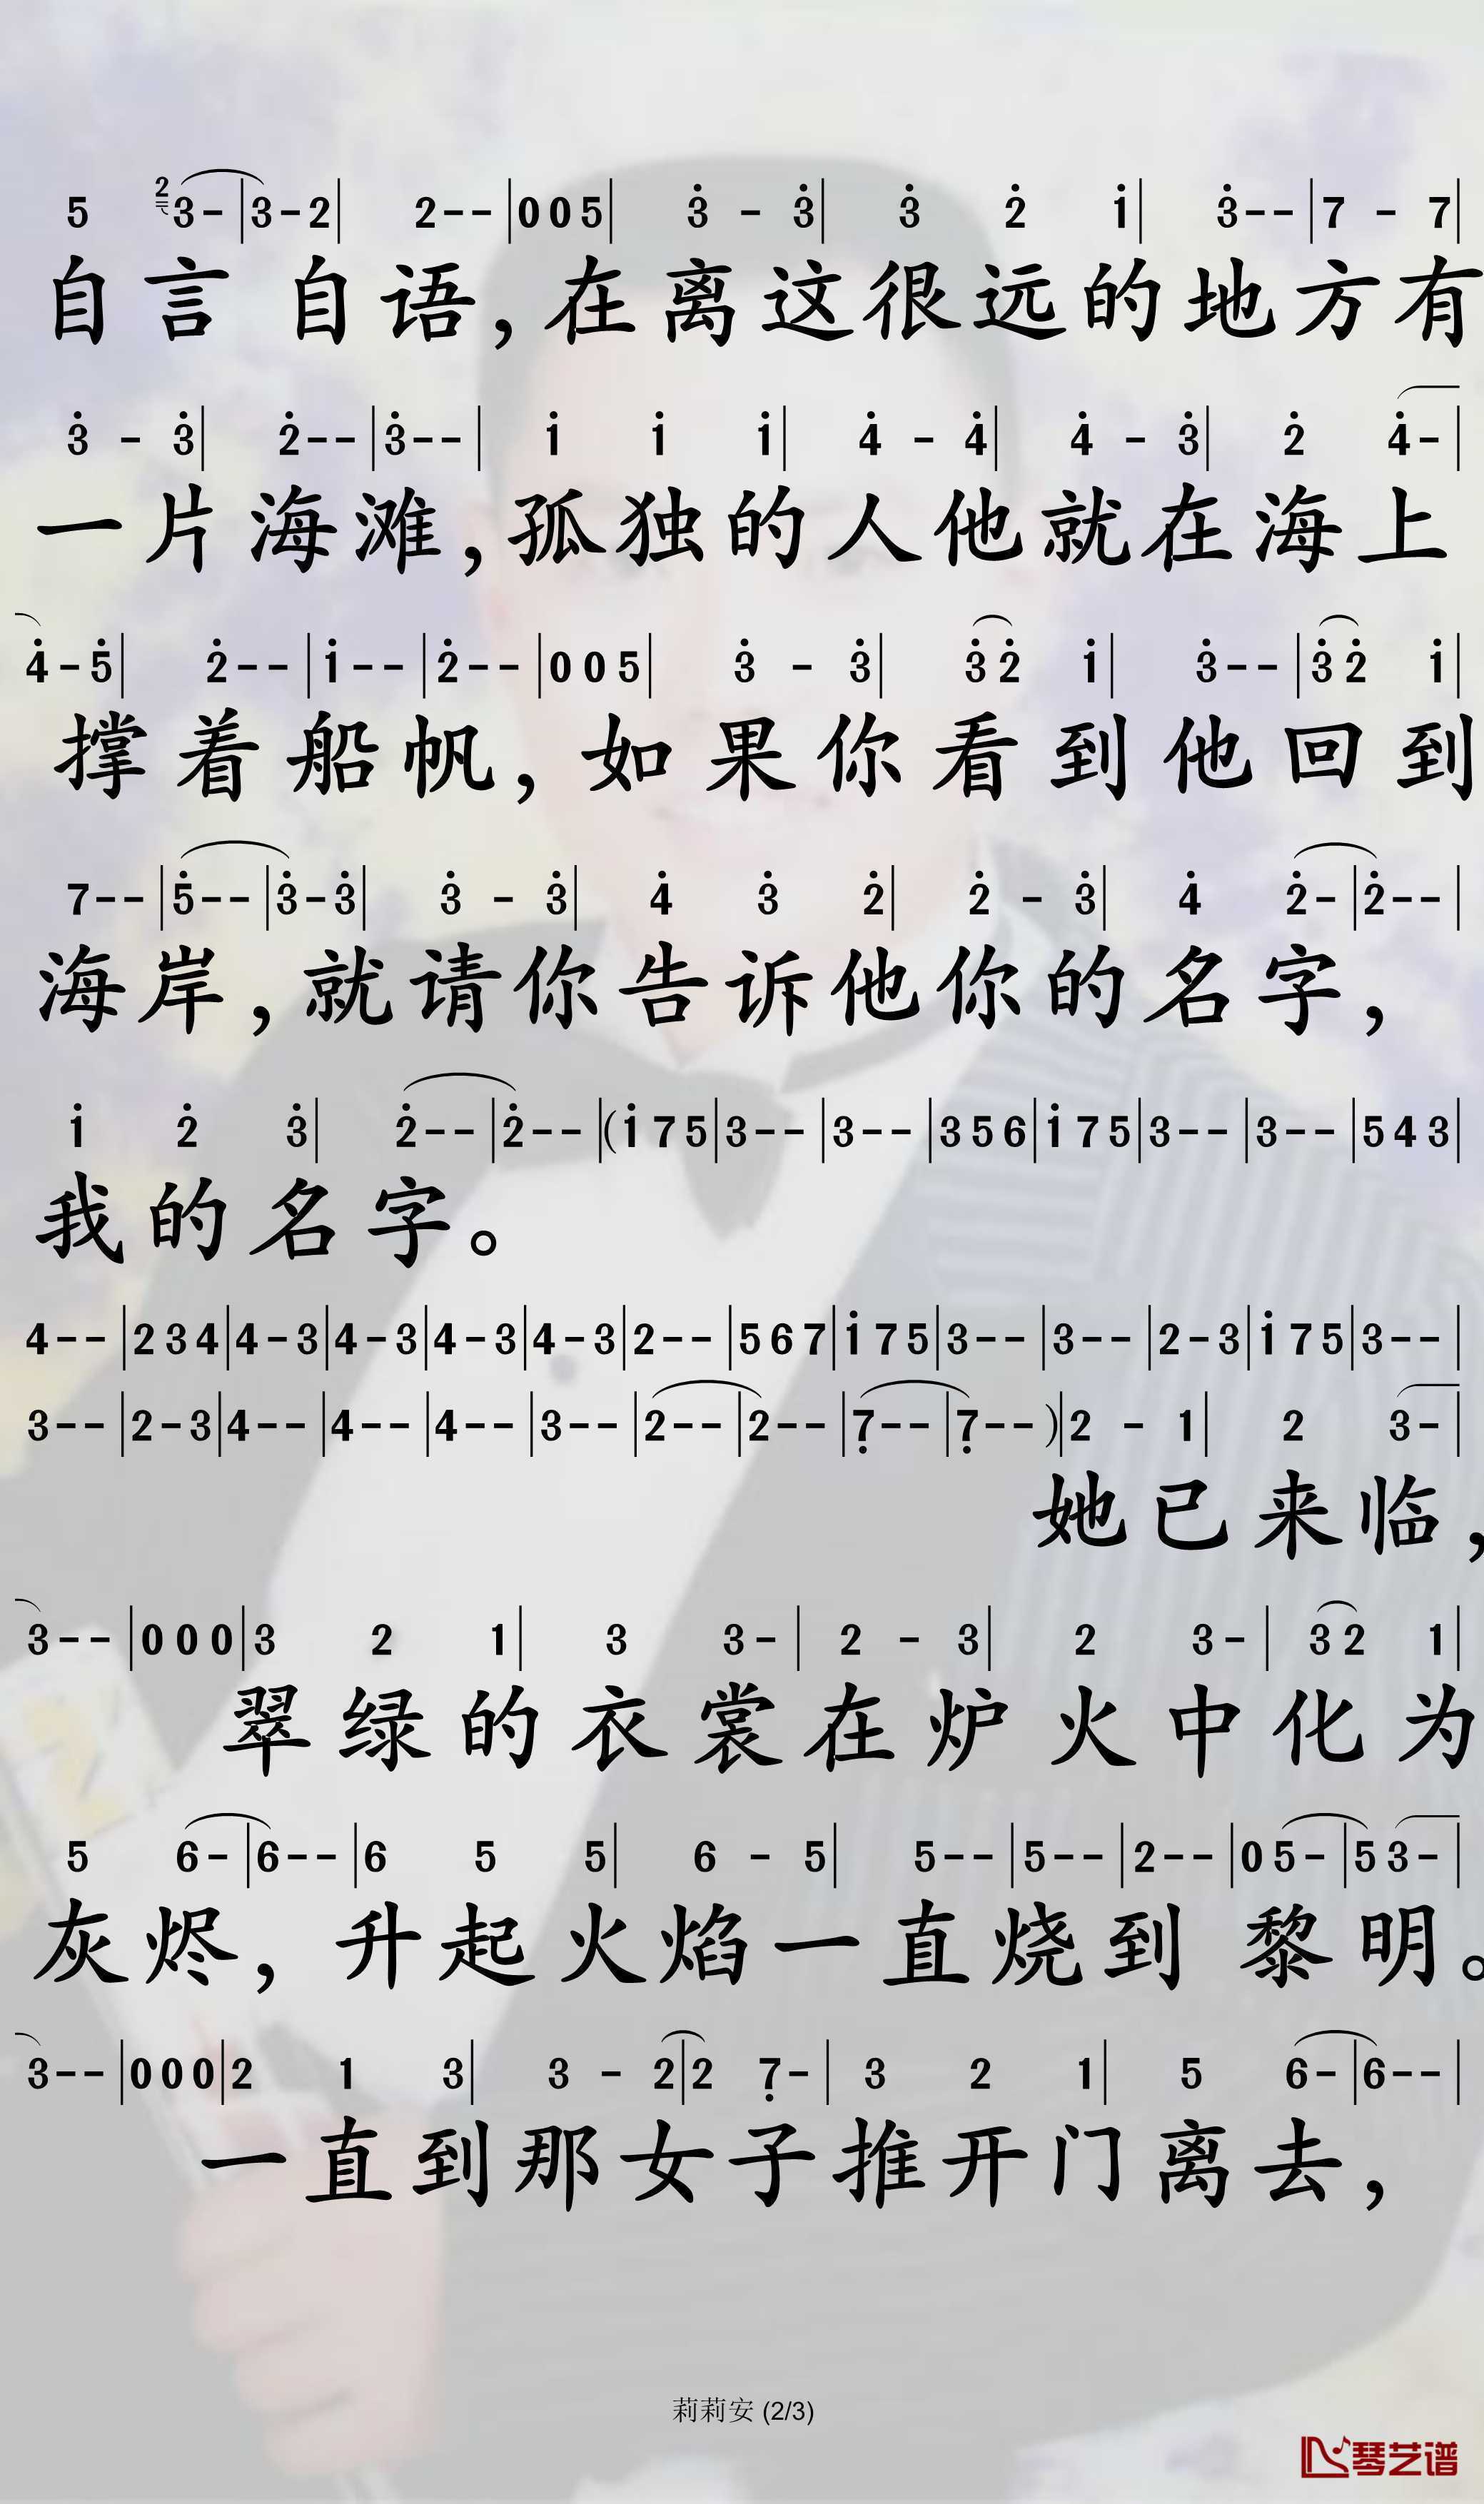 5 2 3- | 3-2 | 2-- | 0 0 5 | 3̇ - 3̇ | 3̇ 2̇ 1̇ | 3̇-- | 7 - 7 |
自言 自语，在离这很远的地方有
3̇ - 3̇ | 2̇-- | 3̇-- | 1̇ 1̇ 1̇ | 4̇ - 4̇ | 4̇ - 3̇ | 2̇ 4̇- |
一片海滩，孤独的人他就在海上
4̇-5̇ | 2̇-- | 1̇-- | 2̇-- | 0 0 5 | 3̇ - 3̇ | 3̇2̇ 1̇ | 3̇-- | 3̇2̇ 1̇ |
撑着船帆，如果你看到他回到
7-- | 5̇-- | 3̇-3̇ | 3̇ - 3̇ | 4̇ 3̇ 2̇ | 2̇ - 3̇ | 4̇ 2̇- | 2̇-- |
海岸，就请你告诉他你的名字，
1̇ 2̇ 3̇ | 2̇-- | 2̇-- | (1̇ 7 5 | 3-- | 3-- | 3 5 6 | 1̇ 7 5 | 3-- | 3-- | 5 4 3 |
我的名字。
4-- | 2 3 4 | 4-3 | 4-3 | 4-3 | 4-3 | 2-- | 5 6 7 | 1̇ 7 5 | 3-- | 3-- | 2-3 | 1̇ 7 5 | 3-- |
3-- | 2-3 | 4-- | 4-- | 4-- | 3-- | 2-- | 2-- | 7̣-- | 7̣-- ) | 2 - 1 | 2 3- |
她已来临，
3-- | 0 0 0 | 3 2 1 | 3 3- | 2 - 3 | 2 3- | 32 1 |
翠绿的衣裳在炉火中化为
5 6- | 6-- | 6 5 5 | 6 - 5 | 5-- | 5-- | 2-- | 0 5- | 5 3- |
灰烬，升起火焰一直烧到 黎明。
3-- | 0 0 0 | 2 1 3 | 3 - 2 | 2 7̣- | 3 2 1 | 5 6- | 6-- |
一直到那女子推开门离去，
莉莉安 (2/3)
琴艺谱